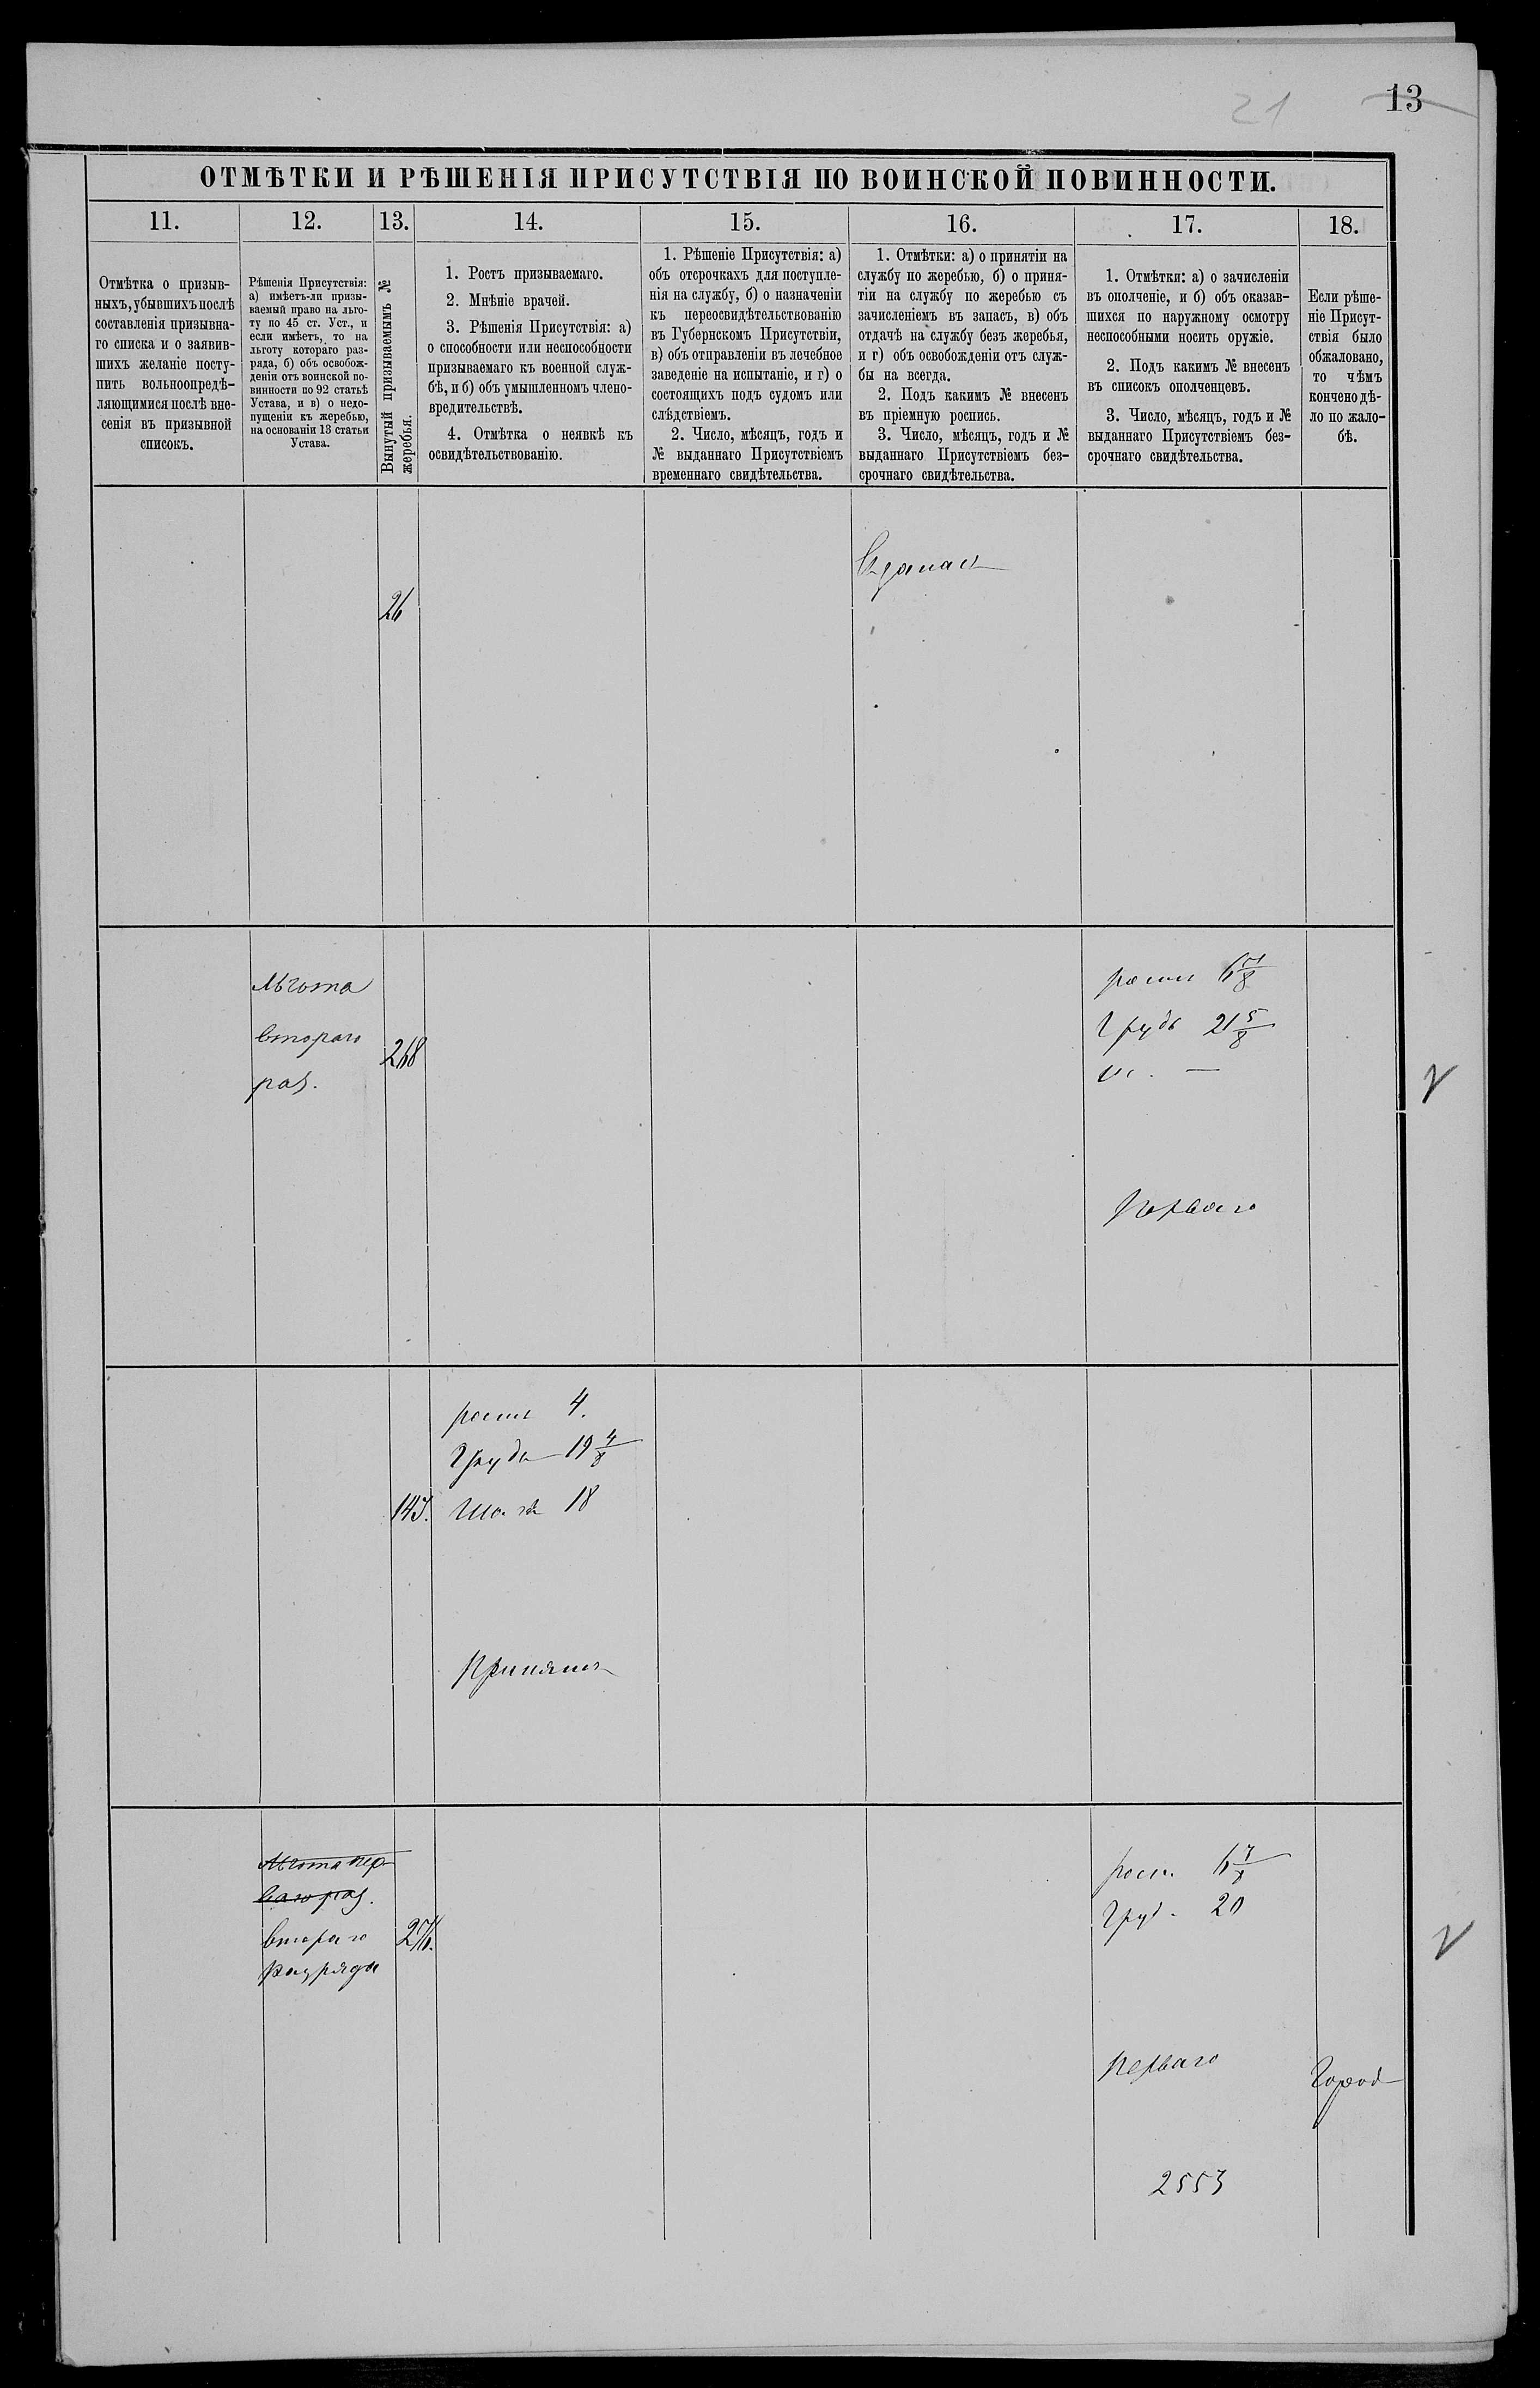 21 13
ОТМѢТКИ И РѢШЕНІЯ ПРИСУТСТВІЯ ПО ВОИНСКОЙ ПОВИННОСТИ.
11.
Отмѣтка о призыв-
ныхъ, убывшихъ послѣ
составленія призывна-
го списка и о заявив-
шихъ желаніе посту-
пить вольноопредѣ-
ляющимися послѣ вне-
сенія въ призывной
списокъ.
12.
Рѣшенія Присутствія:
а) имѣетъ-ли призы-
ваемый право на льго-
ту по 45 ст. Уст., и
если имѣетъ, то на
льготу котораго раз-
ряда, б) объ освобож-
деніи отъ воинской по-
винности по 92 статьѣ
Устава, и в) о недо-
пущеніи къ жеребью,
на основаніи 13 статьи
Устава.
13.
Вынутый призываемымъ №
жеребья.
14.
1. Ростъ призываемаго.
2. Мнѣніе врачей.
3. Рѣшенія Присутствія: а)
о способности или неспособности
призываемаго къ военной служ-
бѣ, и б) объ умышленномъ члено-
вредительствѣ.
4. Отмѣтка о неявкѣ къ
освидѣтельствованію.
15.
1. Рѣшеніе Присутствія: а)
объ отсрочкахъ для поступле-
нія на службу, б) о назначеніи
къ переосвидѣтельствованію
въ Губернскомъ Присутствіи,
в) объ отправленіи въ лечебное
заведеніе на испытаніе, и г) о
состоящихъ подъ судомъ или
слѣдствіемъ.
2. Число, мѣсяцъ, годъ и
№ выданнаго Присутствіемъ
временнаго свидѣтельства.
16.
1. Отмѣтки: а) о принятіи на
службу по жеребью, б) о приня-
тіи на службу по жеребью съ
зачисленіемъ въ запасъ, в) объ
отдачѣ на службу безъ жеребья,
и г) объ освобожденіи отъ служ-
бы на всегда.
2. Подъ какимъ № внесенъ
въ пріемную роспись.
3. Число, мѣсяцъ, годъ и №
выданнаго Присутствіемъ без-
срочнаго свидѣтельства.
17.
1. Отмѣтки: а) о зачисленіи
въ ополченіе, и б) объ оказав-
шихся по наружному осмотру
неспособными носить оружіе.
2. Подъ какимъ № внесенъ
въ списокъ ополченцевъ.
3. Число, мѣсяцъ, годъ и №
выданнаго Присутствіемъ без-
срочнаго свидѣтельства.
18.
Если рѣше-
ніе Присут-
ствія было
обжаловано,
то чѣмъ
кончено дѣ-
ло по жало-
бѣ.
26
Льгота
втораго
раз.
268
ростъ
Грудь 21 5/8
Перваго
ростъ 4.
Грудь 19 4/8
18
Принятъ
Льгота пер-
ваго раз.
втораго
разряда
рост. 6 7/8
Груд. 20
Перваго
Город
2553